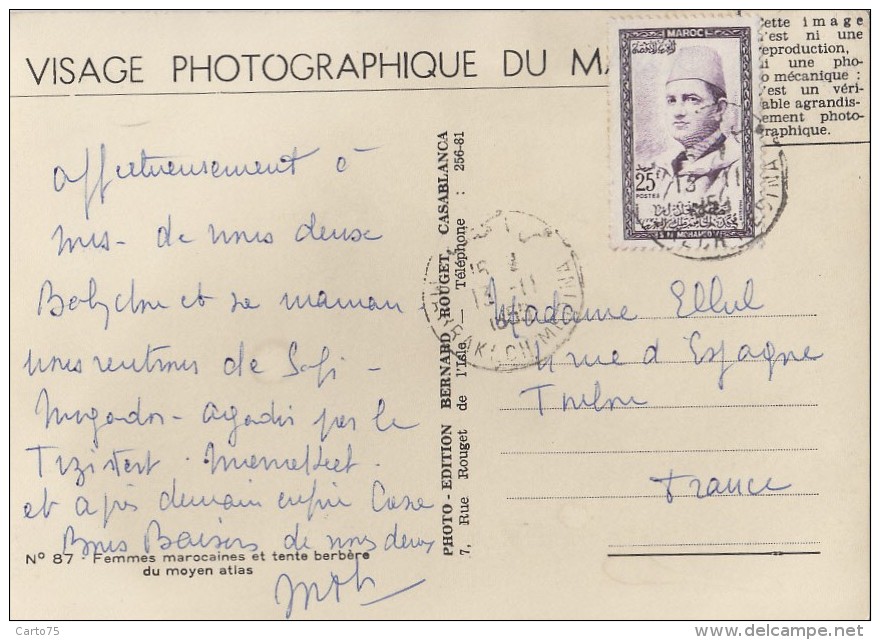 VISAGE PHOTOGRAPHIQUE DU MA
Cette image
n'est ni une
reproduction,
ni une pho-
o mécanique :
c'est un véri-
able agrandis-
sement photo-
graphique.
MAROC
25
POSTES
S.M. MOHAMED V
affectueusement à
de nous deux
et sa maman
nous rentrons de Safi -
Mogador - Agadir par le
Tizi
et après demain enfin Casa
Bons Baisers de nous deux
PHOTO - EDITION BERNARD ROUGET, CASABLANCA
7, Rue Rouget de l'Isle — Téléphone : 256-81
13 - 11
MEDINA
Madame Ellul
rue d'Espagne
Toulon
France
N° 87 - Femmes marocaines et tente berbère
du moyen atlas
Carto75
www.delcampe.net